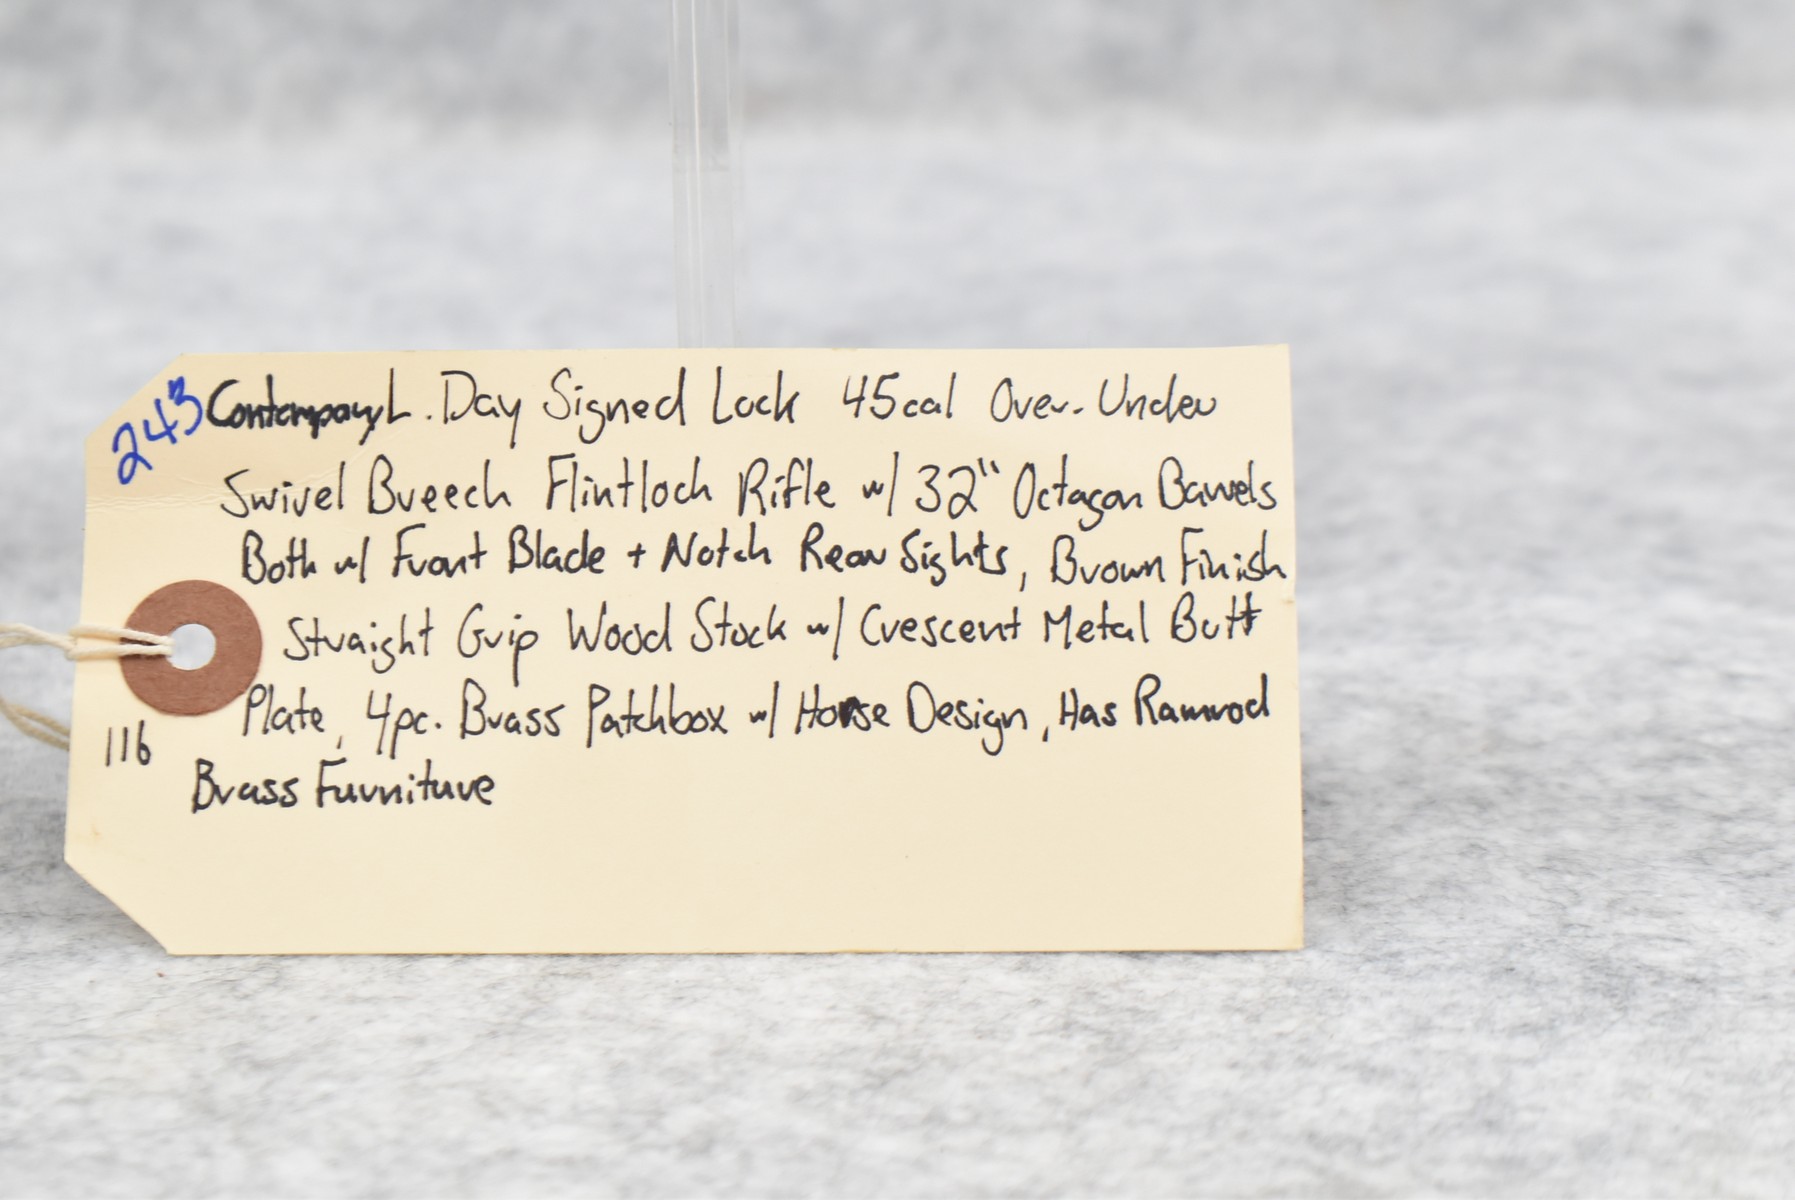 243
Contempoary L. Day Signed Lock 45cal Over-Under
Swivel Breech Flintlock Rifle w/ 32" Octagon Barrels
Both w/ Front Blade + Notch Rear Sights, Brown Finish
Straight Grip Wood Stock w/ Crescent Metal Butt
Plate, 4pc. Brass Patchbox w/ Horse Design, Has Ramrod
116
Brass Furniture